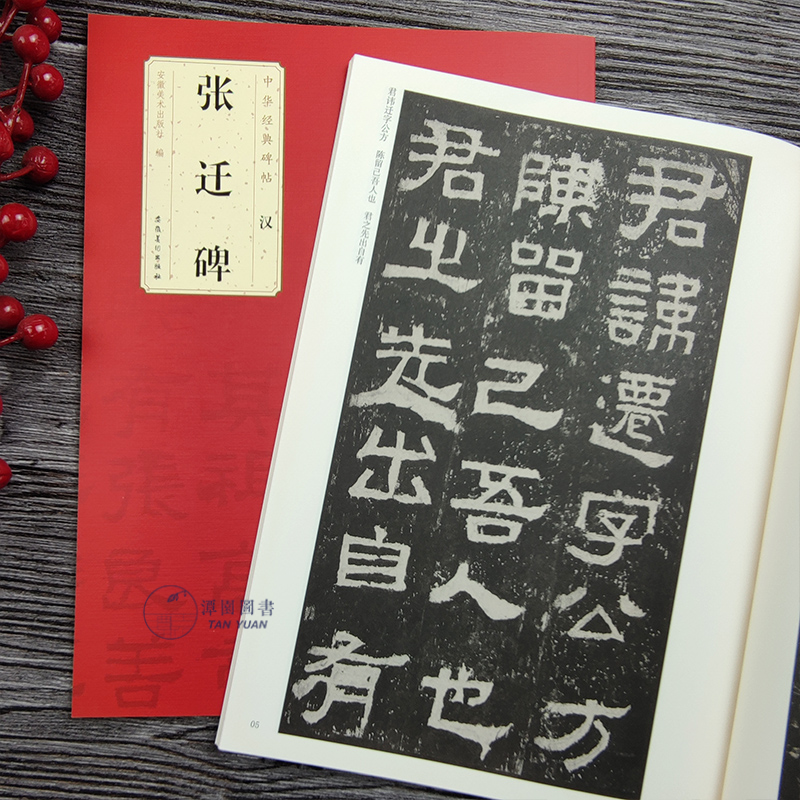 中华经典碑帖 汉
张迁碑
安徽美术出版社 编
安徽美术出版社
君讳迁字公方 陈留己吾人也 君之先出自有
君諱遷字公方
陳留己吾人也
君之先出自有
05
潭園圖書
TAN YUAN